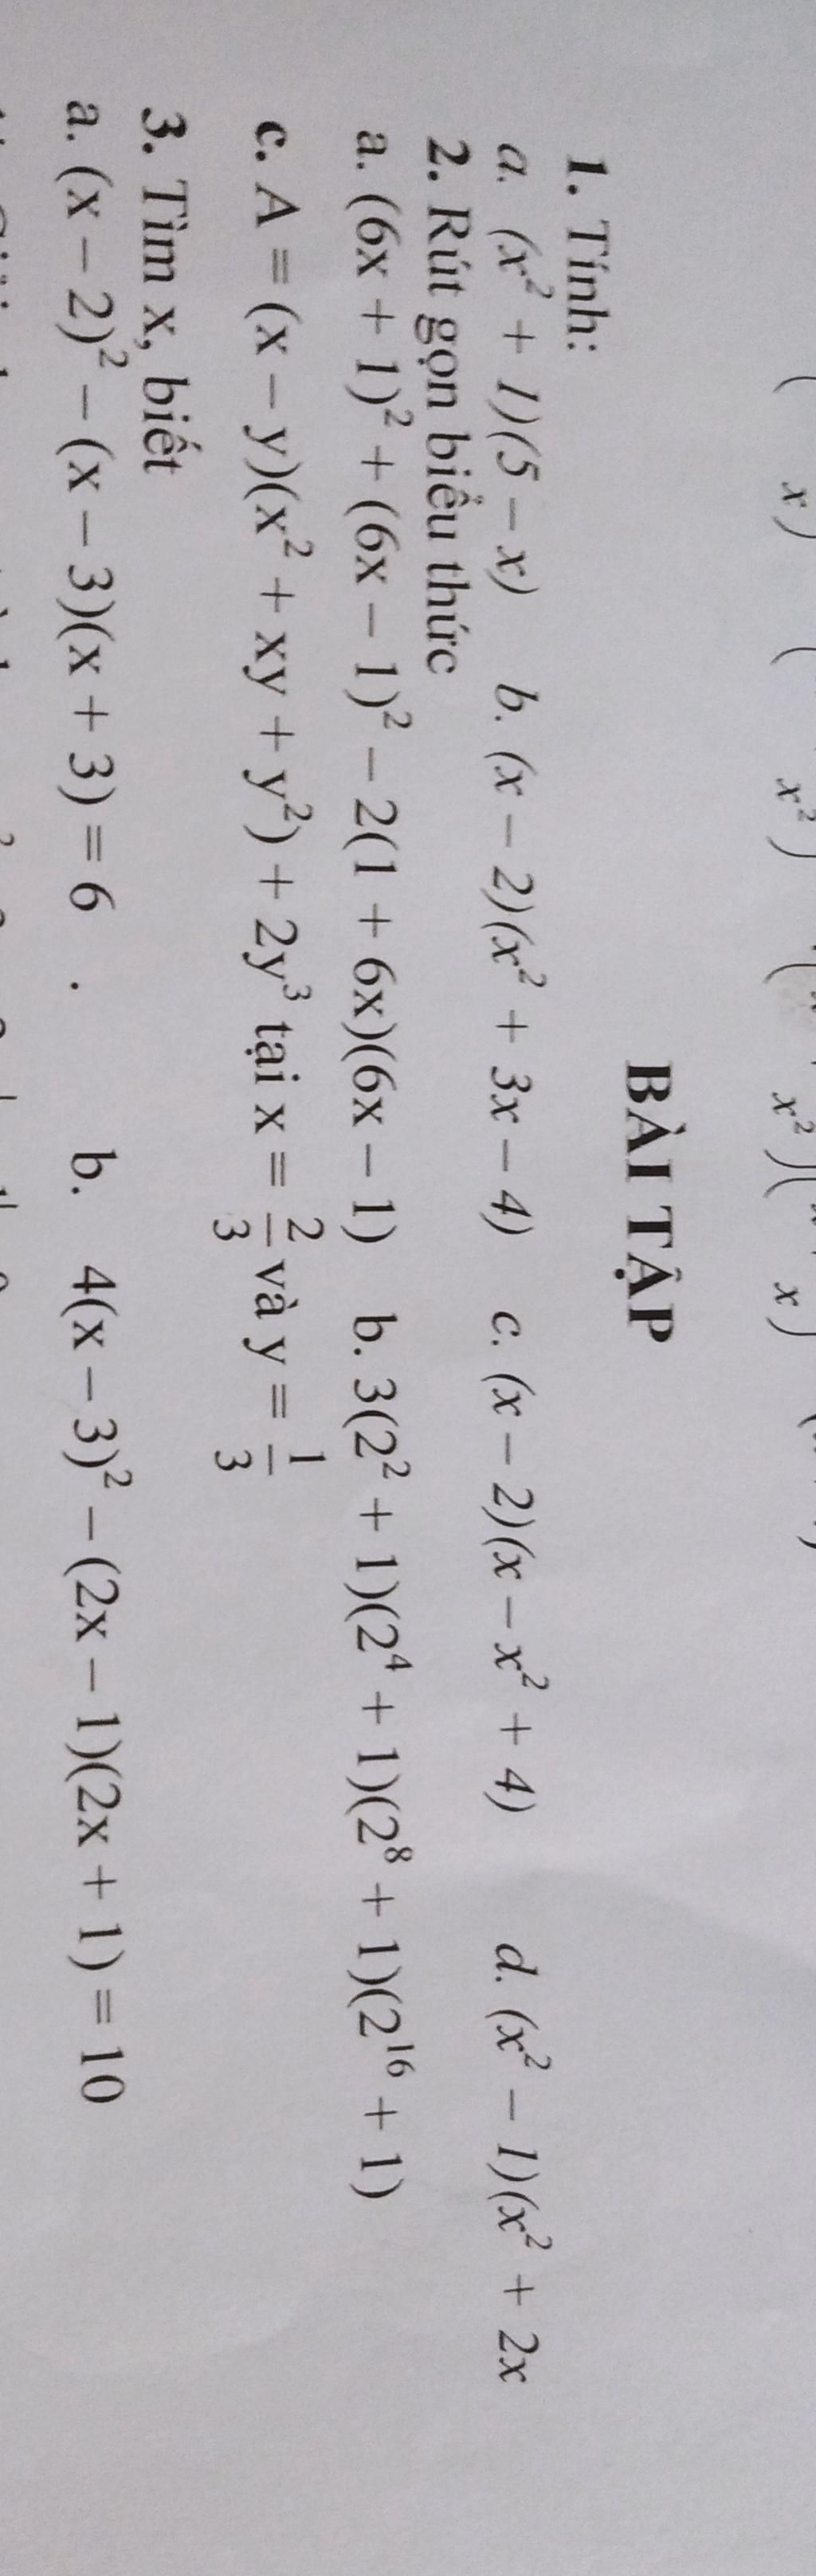 BÀI TẬP
1. Tính:
a. (x² + 1)(5 – x) b. (x – 2)(x² + 3x – 4) c. (x – 2)(x – x² + 4) d. (x² – 1)(x² + 2x
2. Rút gọn biểu thức
a. (6x + 1)² + (6x – 1)² – 2(1 + 6x)(6x – 1) b. 3(2² + 1)(2⁴ + 1)(2⁸ + 1)(2¹⁶ + 1)
c. A = (x – y)(x² + xy + y²) + 2y³ tại x = 2/3 và y = 1/3
3. Tìm x, biết
a. (x – 2)² – (x – 3)(x + 3) = 6 . b. 4(x – 3)² – (2x – 1)(2x + 1) = 10